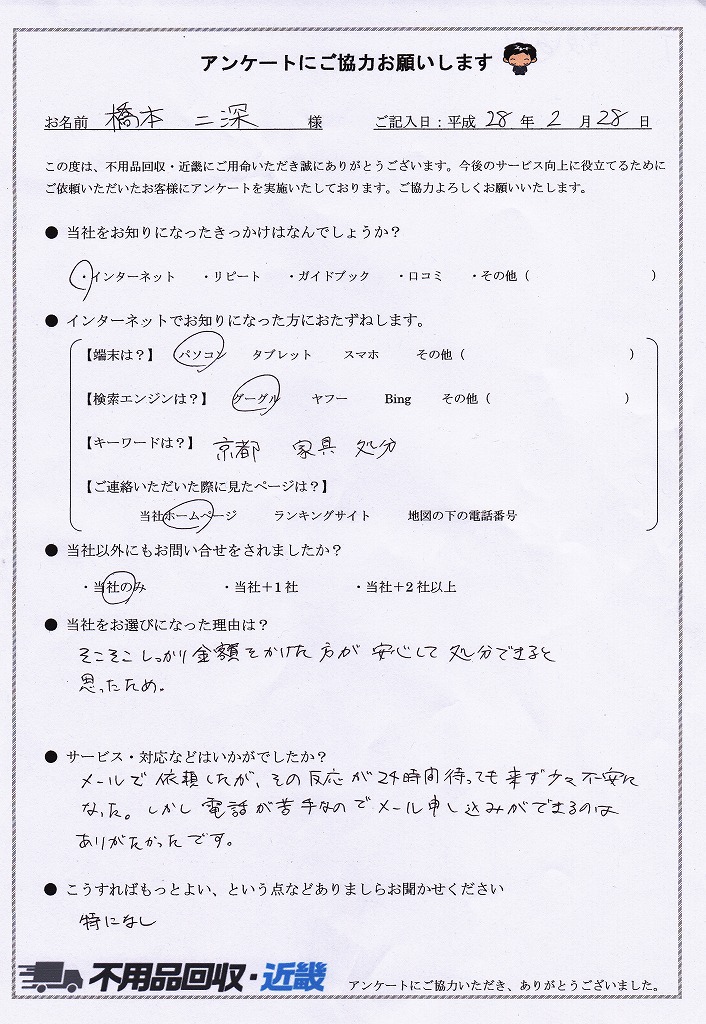 アンケートにご協力お願いします
お名前 橋本 二深 様 ご記入日：平成 28 年 2 月 28 日
この度は、不用品回収・近畿にご用命いただき誠にありがとうございます。今後のサービス向上に役立てるために
ご依頼いただいたお客様にアンケートを実施いたしております。ご協力よろしくお願いいたします。
● 当社をお知りになったきっかけはなんでしょうか？
・インターネット ・リピート ・ガイドブック ・口コミ ・その他（ ）
● インターネットでお知りになった方におたずねします。
【端末は？】 パソコン タブレット スマホ その他（ ）
【検索エンジンは？】 グーグル ヤフー Bing その他（ ）
【キーワードは？】 京都 家具 処分
【ご連絡いただいた際に見たページは？】
当社ホームページ ランキングサイト 地図の下の電話番号
● 当社以外にもお問い合せをされましたか？
・当社のみ ・当社＋1 社 ・当社＋2 社以上
● 当社をお選びになった理由は？
そこそこしっかり金額をかけた方が 安心して 処分できると
思ったため。
● サービス・対応などはいかがでしたか？
メールで依頼したが、その反応が24時間待っても来ず少々不安に
なった。しかし電話が苦手なのでメール申し込みができるのは
ありがたかったです。
● こうすればもっとよい、という点などありましらお聞かせください
特になし
不用品回収・近畿 アンケートにご協力いただき、ありがとうございました。